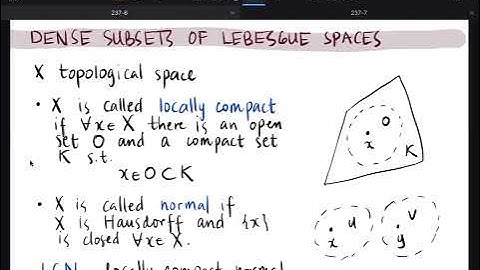 237-8
237-7
DENSE SUBSETS OF LEBESGUE SPACES
X topological space
• X is called locally compact
if ∀x∈X there is an open
set O and a compact set
K s.t.
x∈O⊂K
O
x
K
• X is called normal if
X is Hausdorff and {x}
is closed ∀x∈X.
x
U
y
V
LCN locally compact normal